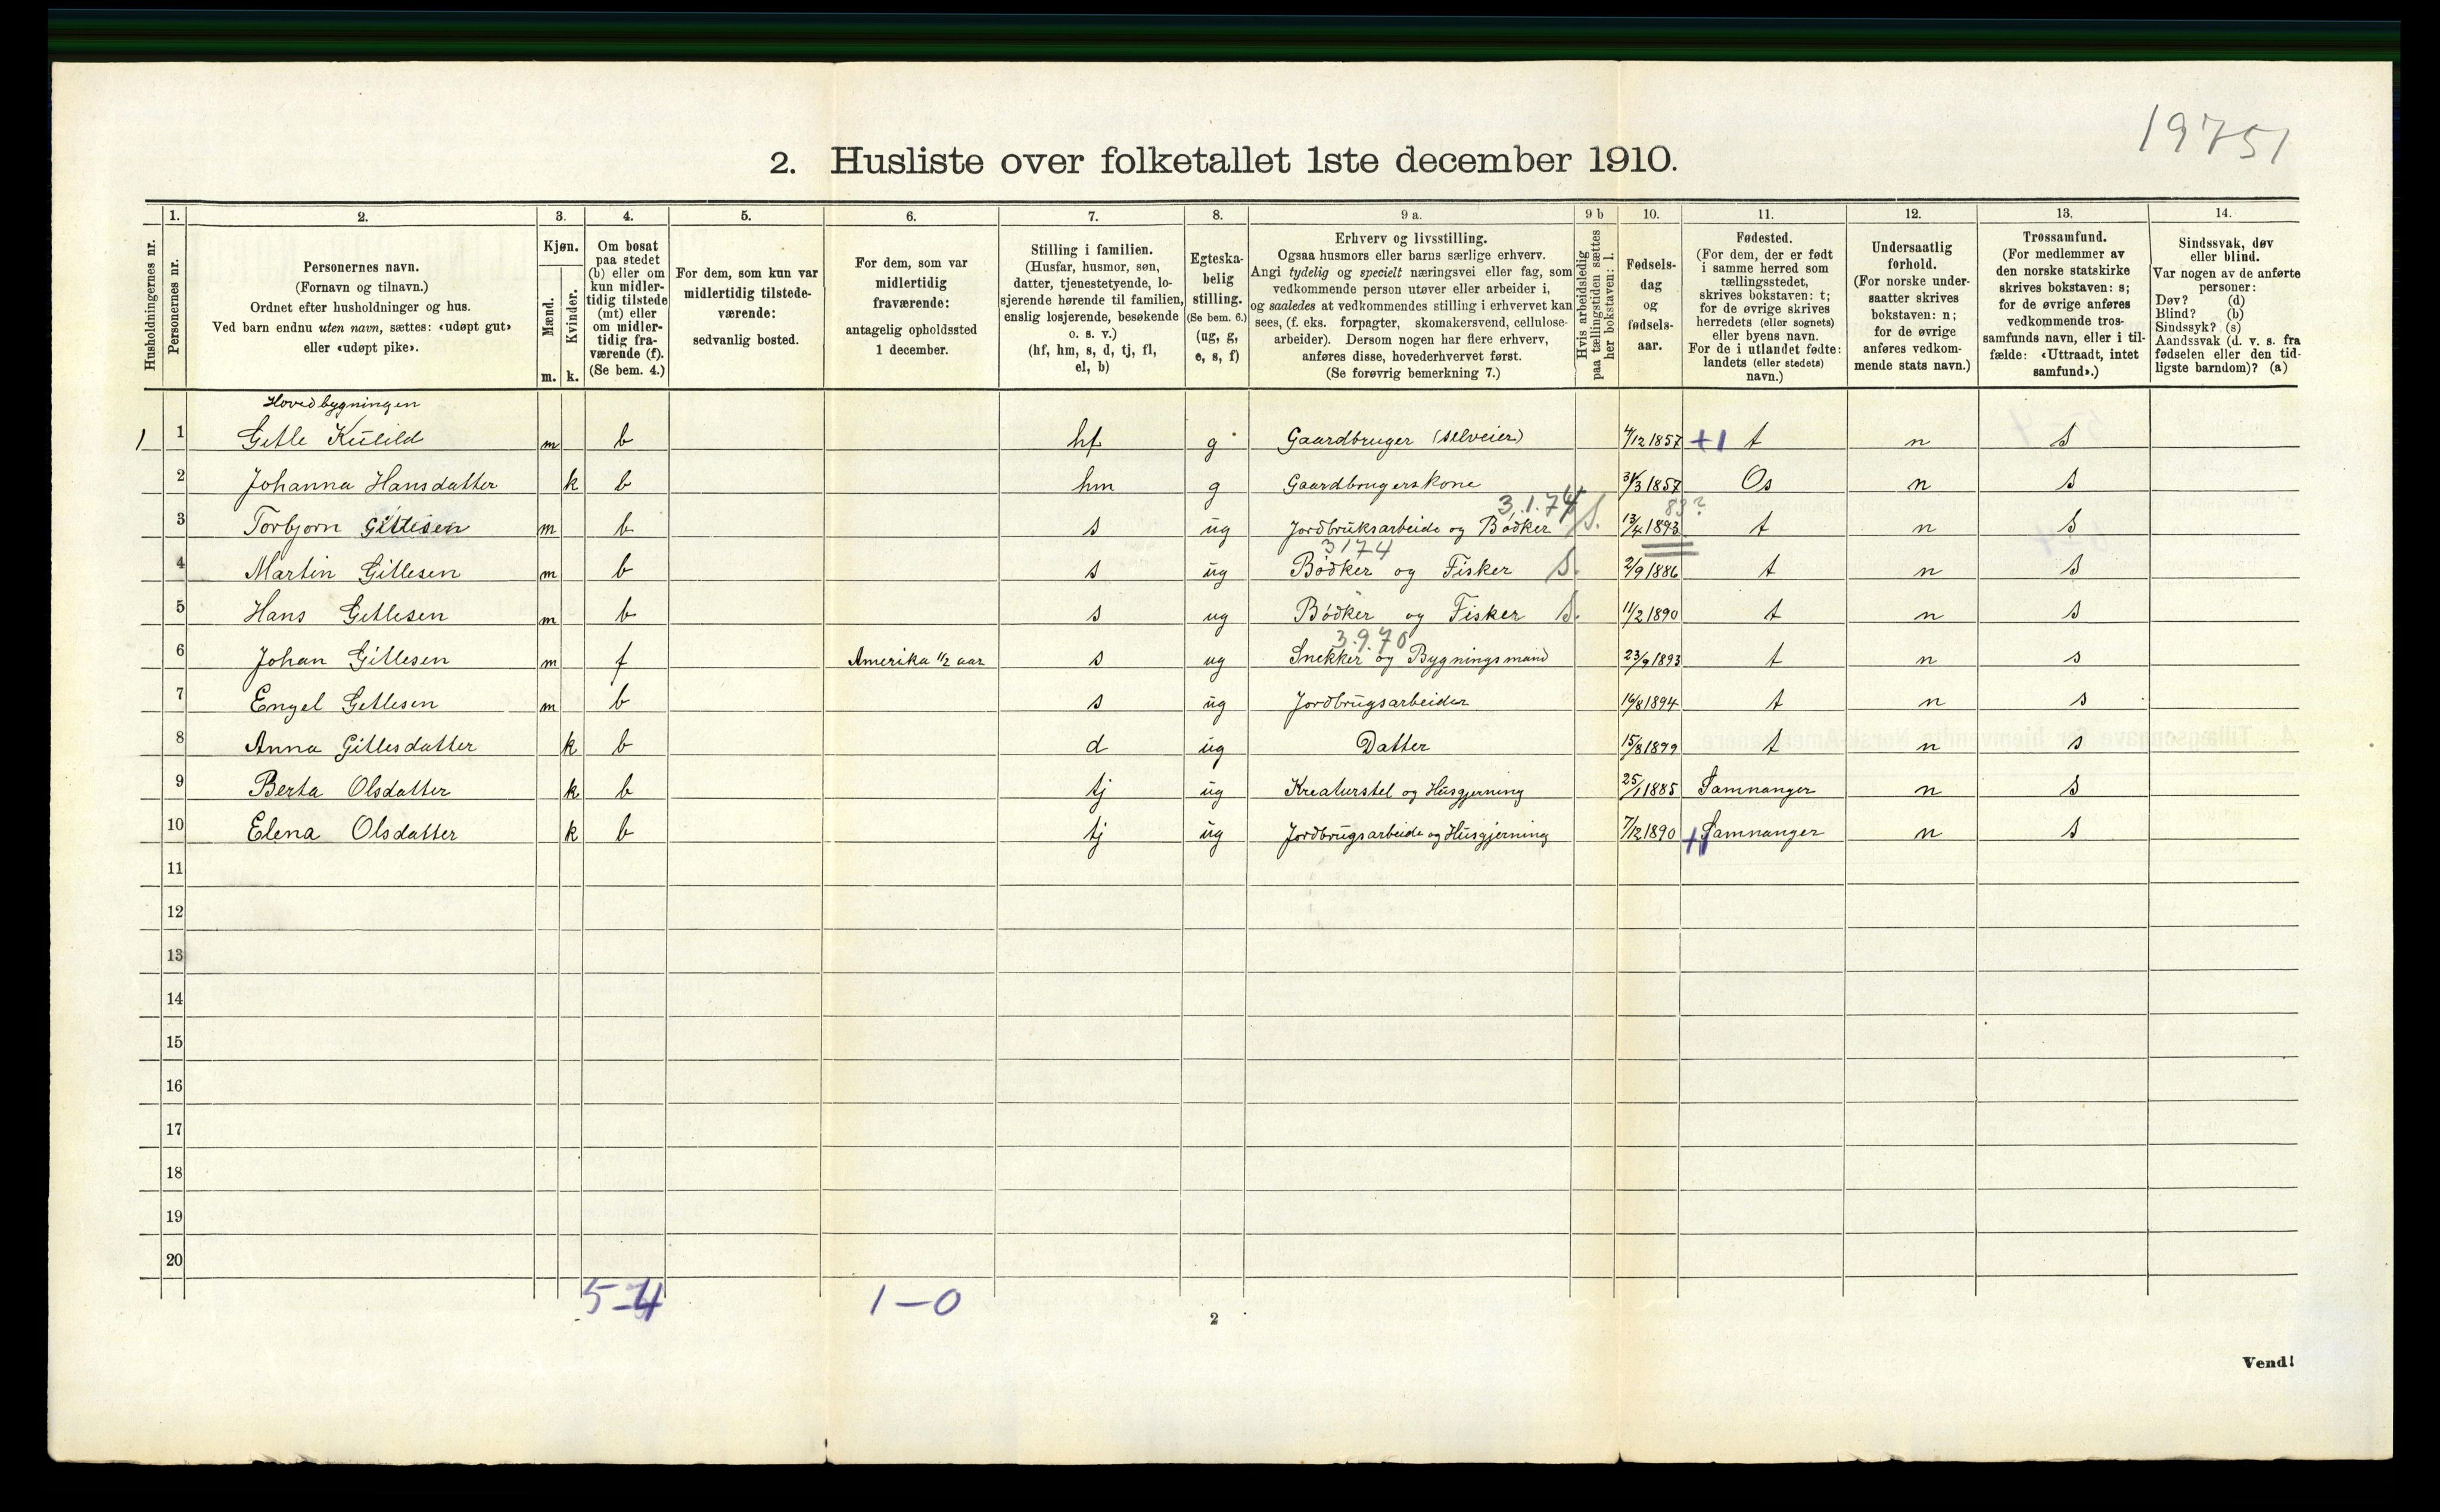 19751
2. Husliste over folketallet 1ste december 1910.
Husholdningernes nr.
1.
Personernes nr.
2.
Personernes navn.
(Fornavn og tilnavn.)
Ordnet efter husholdninger og hus.
Ved barn endnu uten navn, sættes: «udøpt gut»
eller «udøpt pike».
3.
Kjøn.
Mænd.
Kvinder.
m. k.
4.
Om bosat
paa stedet
(b) eller om
kun midler-
tidig tilstede
(mt) eller
om midler-
tidig fra-
værende (f).
(Se bem. 4.)
5.
For dem, som kun var
midlertidig tilstede-
værende:
sedvanlig bosted.
6.
For dem, som var
midlertidig
fraværende:
antagelig opholdssted
1 december.
7.
Stilling i familien.
(Husfar, husmor, søn,
datter, tjenestetyende, lo-
sjerende hørende til familien,
enslig losjerende, besøkende
o. s. v.)
(hf, hm, s, d, tj, fl,
el, b)
8.
Egteska-
belig
stilling.
(Se bem. 6.)
(ug, g,
e, s, f)
9 a.
Erhverv og livsstilling.
Ogsaa husmors eller barns særlige erhverv.
Angi tydelig og specielt næringsvei eller fag, som
vedkommende person utøver eller arbeider i,
og saaledes at vedkommendes stilling i erhvervet kan
sees, (f. eks. forpagter, skomakersvend, cellulose-
arbeider). Dersom nogen har flere erhverv,
anføres disse, hovederhvervet først.
(Se forøvrig bemerkning 7.)
9 b
Hvis arbeidsledig
paa tællingstiden sættes
her bokstaven: l.
10.
Fødsels-
dag
og
fødsels-
aar.
11.
Fødested.
(For dem, der er født
i samme herred som
tællingsstedet,
skrives bokstaven: t;
for de øvrige skrives
herredets (eller sognets)
eller byens navn.
For de i utlandet fødte:
landets (eller stedets)
navn.)
12.
Undersaatlig
forhold.
(For norske under-
saatter skrives
bokstaven: n;
for de øvrige
anføres vedkom-
mende stats navn.)
13.
Trossamfund.
(For medlemmer av
den norske statskirke
skrives bokstaven: s;
for de øvrige anføres
vedkommende tros-
samfunds navn, eller i til-
fælde: «Uttraadt, intet
samfund».)
14.
Sindssvak, døv
eller blind.
Var nogen av de anførte
personer:
Døv? (d)
Blind? (b)
Sindssyk? (s)
Aandssvak (d. v. s. fra
fødselen eller den tid-
ligste barndom)? (a)
Hovedbygningen
1 1 Gitle Kulild m b hf g Gaardbruger (selveier) 4/12 1857 +1 t n s
2 Johanna Hansdatter k b hm g Gaardbrugerskone 31/3 1857 Os n s
3.1.74 83?
3 Torbjørn Gitlesen m b s ug Jordbruksarbeide og Bødker S. 13/4 1893 t n s
3174
4 Martin Gitlesen m b s ug Bødker og Fisker S. 2/9 1886 t n s
5 Hans Gitlesen m b s ug Bødker og Fisker S. 11/2 1890 t n s
3.9.70
6 Johan Gitlesen m f Amerika 1 1/2 aar s ug Snekker og Bygningsmand 23/9 1893 t n s
7 Engel Gitlesen m b s ug Jordbrugsarbeider 16/8 1894 t n s
8 Anna Gitlesdatter k b d ug Datter 15/8 1899 t n s
9 Berta Olsdatter k b tj ug Kreaturstel og Husgjerning 25/1 1885 Samnanger n s
10 Elena Olsdatter k b tj ug Jordbrugsarbeide og Husgjerning 7/12 1890 Samnanger n s
11
12
13
14
15
16
17
18
19
20
5-4 1-0
2
Vend!